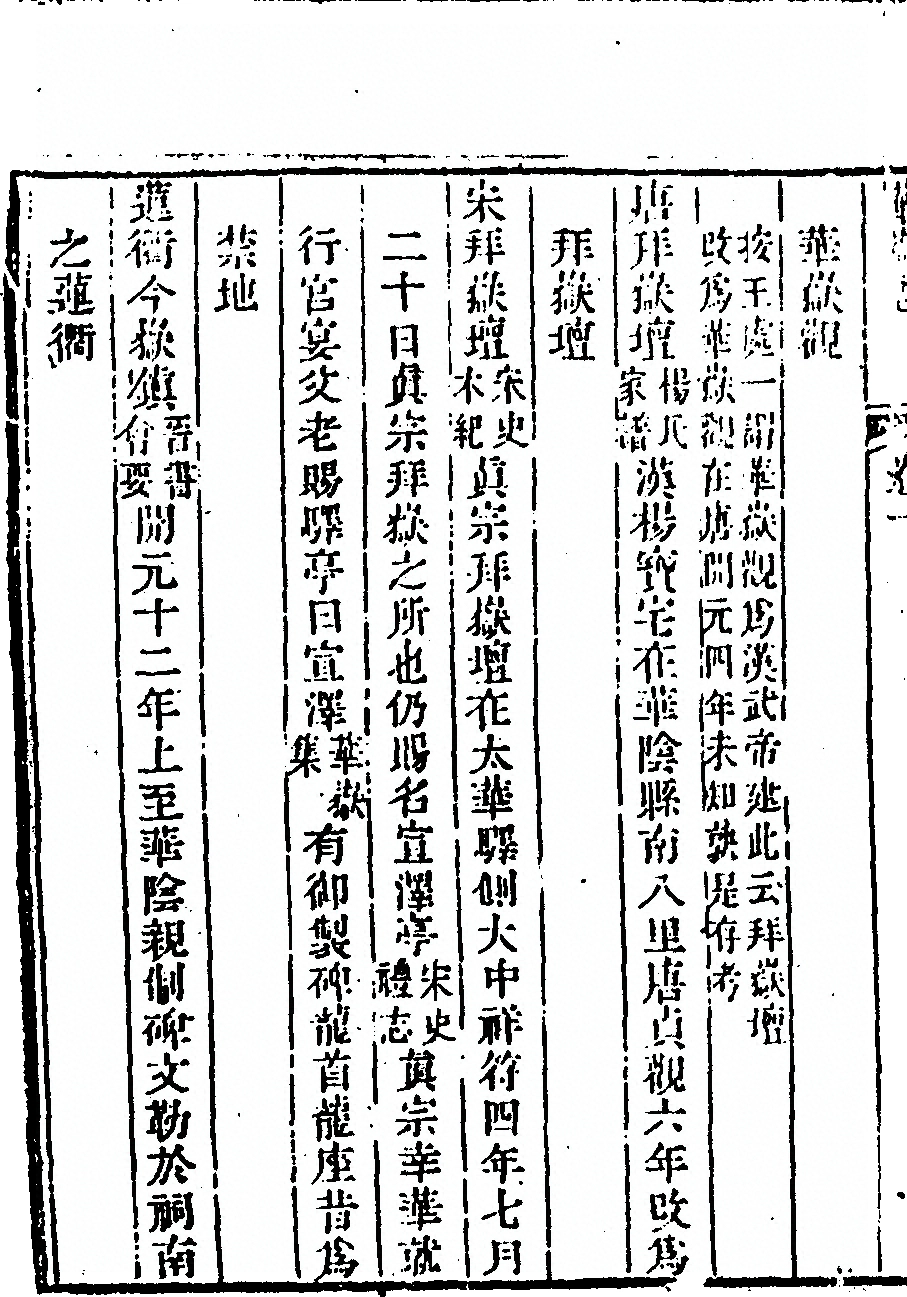 華嶽觀
按王處一謂華嶽觀爲漢武帝建此云拜嶽壇
改爲華嶽觀在唐開元四年未知孰是存考
唐拜嶽壇楊氏家譜漢楊寶宅在華陰縣南八里唐貞觀六年改爲
拜嶽壇
宋拜嶽壇宋史本紀眞宗拜嶽壇在太華驛側大中祥符四年七月
二十日眞宗拜嶽之所也仍賜名宣澤亭宋史禮志眞宗幸華就
行宮宴父老賜驛亭曰宣澤華嶽集有御製碑龍首龍座昔爲
禁地
蓮衢今嶽鎭晉書會要開元十二年上至華陰親制碑文勒於祠南
之蓮衢